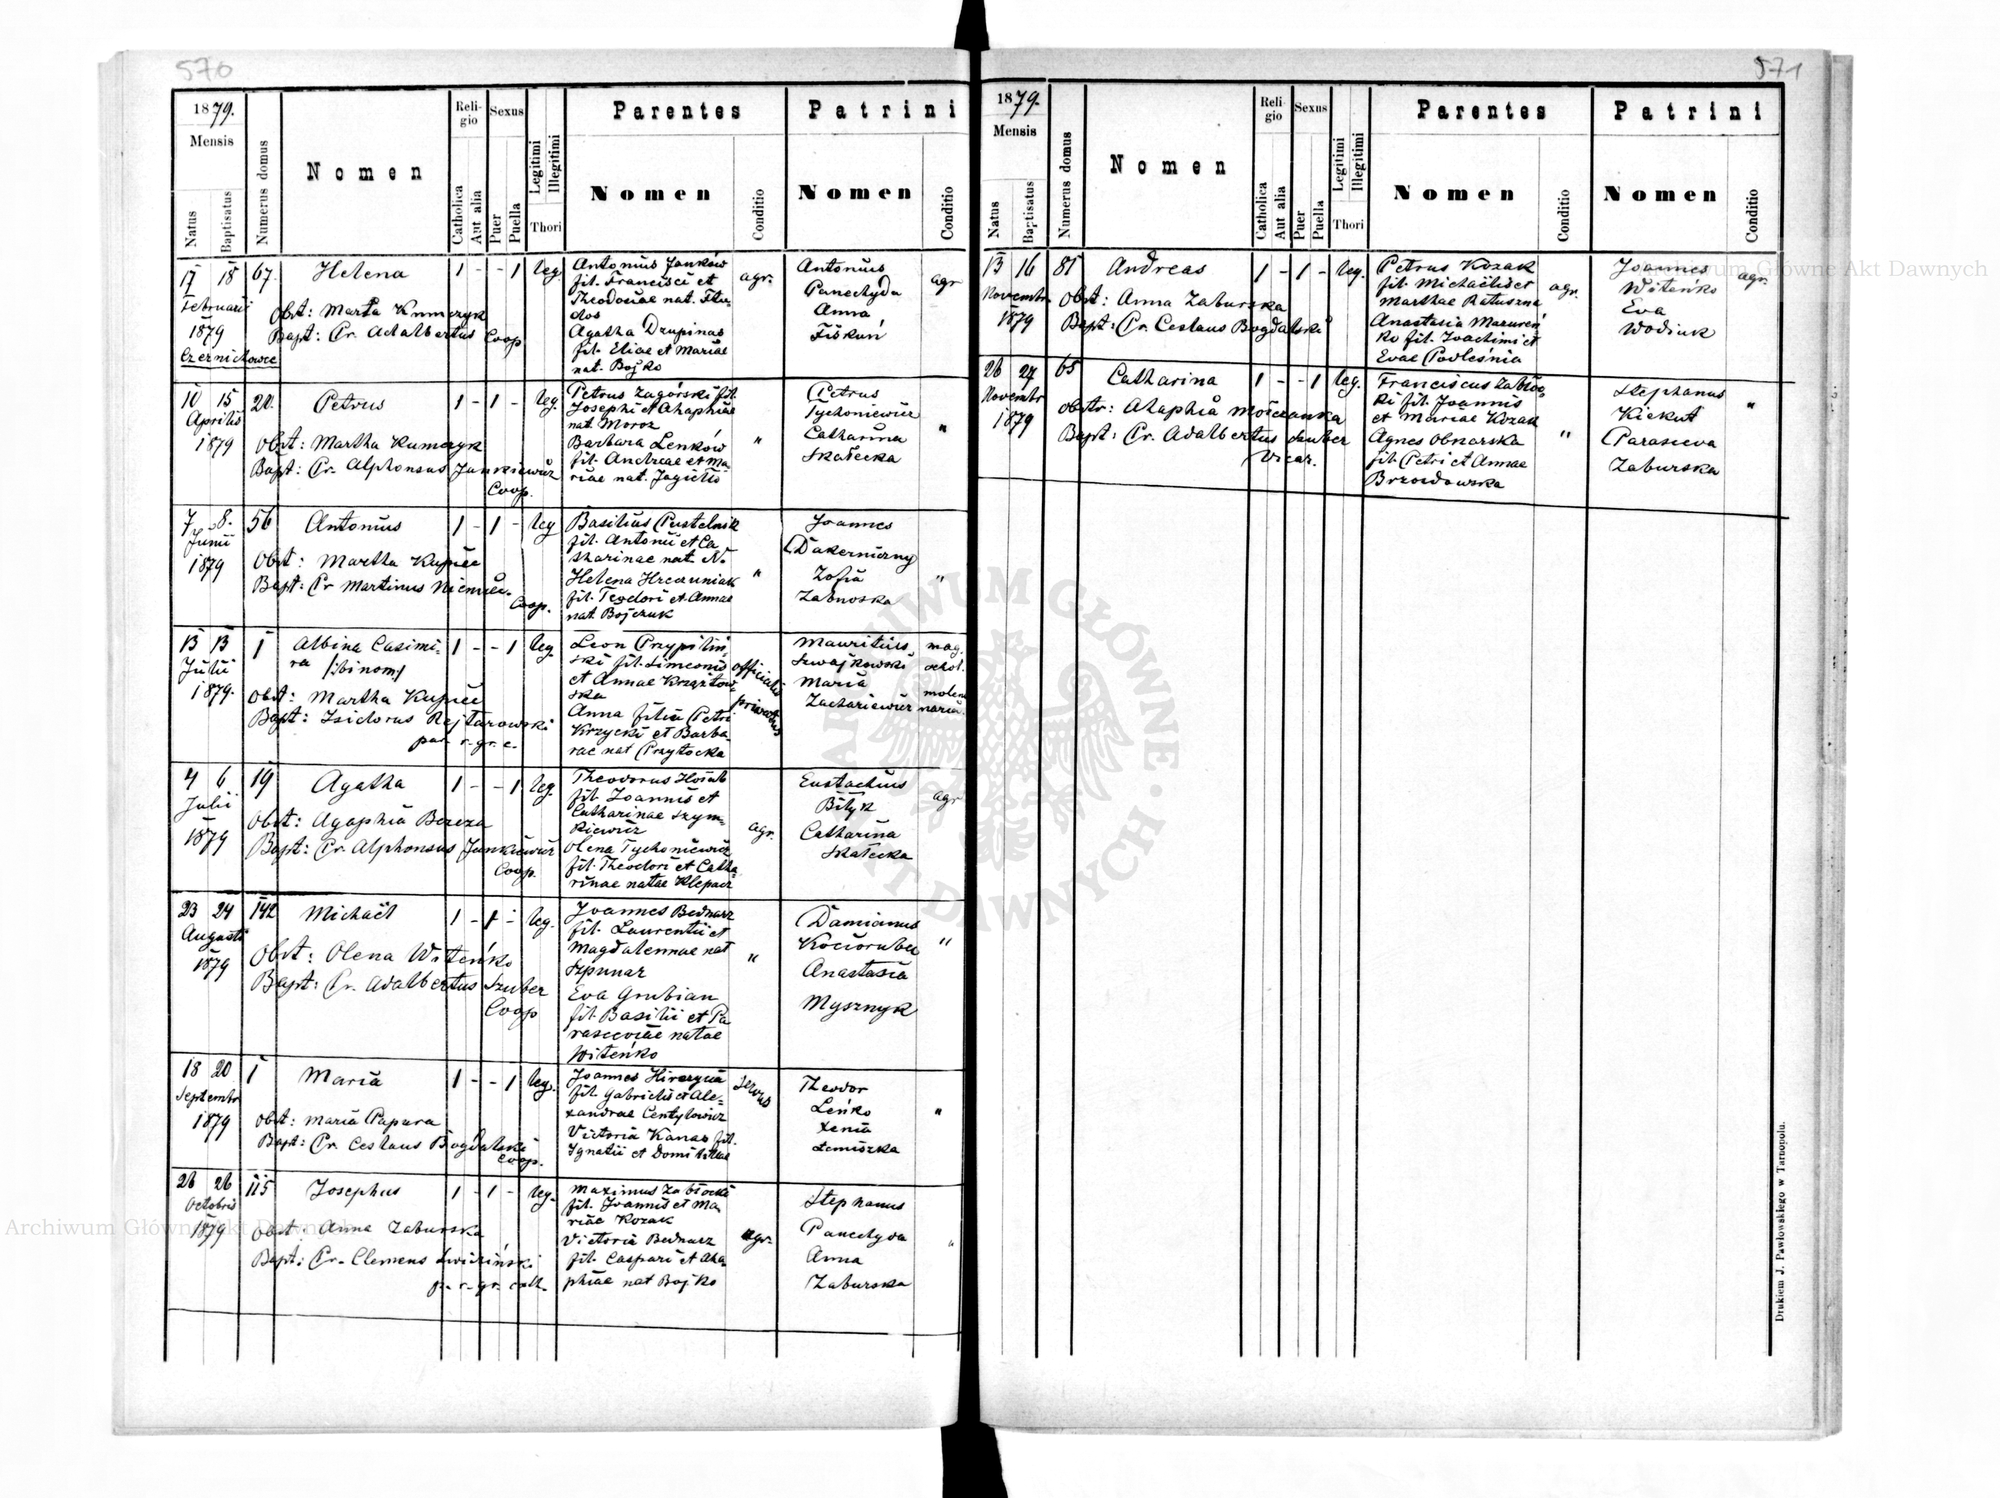 570
1879.
Mensis
Natus
Baptisatus
Numerus domus
Nomen
Religio
Catholica
Aut alia
Sexus
Puer
Puella
Legitimi
Illegitimi
Thori
Parentes
Nomen
Conditio
Patrini
Nomen
Conditio
17 18 67. Helena 1 - - 1 leg.
Februarii
1879
Czernichowce
Obst: Marta Kumczyk
Bapt: Pr. Adalbertus Coop.
Antonius Jonków
fil. Francisci et
Theodosiae nat.
Agatha Drupinas
fil. Eliae et Mariae
nat. Bojko
agr.
Antonius
Panchyda
Anna
agr
10 15 20. Petrus 1 - 1 - leg.
Aprilis
1879
Obst: Martha Kumczyk
Bapt: Pr. Alphonsus Jankiewicz
Coop.
Petrus Zagórski fil.
Josephi et Ahaphiae
nat Moroz
Barbara Lenków
fil. Andreae et Ma
riae nat. Jagiełło
"
Petrus
Tychoniewicz
Catharina
Skałecka
"
7 8. 56 Antonius 1 - 1 - leg
Junii
1879
Obst: Martha Kupiec
Bapt: Pr Martinus Niemiec
Coop.
Basilius Pustelnik
fil. Antonii et Ca
tharinae nat. N.
Helena Hreczuniak
fil. Teodori et Annae
nat Bojczuk
"
Joannes
Zofia
"
13 13 1 Albina Casimi-
ra /:binom:/ 1 - - 1 leg.
Julii
1879.
Obst: Martha Kupiec
Bapt: Isidorus Rajtarowski
par. r. gr. c.
Leon Przypiliń-
ski fil. Simeonis
et Annae Krzyżtow-
ska
Anna filia Petri
Krzycki et Barba-
rae nat Przyłocka
officialis
privatus
Mauritius
Szwajkowski
Maria
Zachariewicz
mag.
schol.
4 6 19 Agatha 1 - - 1 leg.
Julii
1879
Obst: Agaphia Bereza
Bapt: Pr. Alphonsus Jankiewicz
Coop.
Theodorus
fil. Joannis et
Catharinae Szym-
kiewicz
Olena Tychoniewicz
fil. Theodori et Catha-
rinae natae Klepacz
agr.
Eustachius
Biłyk
Catharina
Skałecka
agr
23 24 142 Michaël 1 - 1 - leg.
Augusti
1879
Obst: Olena Witeńko
Bapt: Pr. Adalbertus Szuber
Coop
Joannes Bednarz
fil. Laurentii et
Magdalennae nat
Szpunar
Eva Grubian
fil. Basilii et Pa
rasceviae natae
Witeńko
"
Damianus
Kocioruba
Anastasia
Mysznyk
"
18 20 1 Maria 1 - - 1 leg.
Septembr
1879
Obst: Maria Papura
Bapt: Pr. Ceslaus Bogdalski
Coop.
Joannes
fil. Gabrielis et Ale-
xandrae Centylowicz
Victoria Kanas fil.
Ignatii et Domitillae
servus
Theodor
Leńko
Xenia
Łemiszka
"
26 26 115 Josephus 1 - 1 - leg.
Octobris
1879
Obst: Anna Zaburska
Bapt: Pr. Clemens
p. r. gr. cath.
Maximus Zabłocki
fil. Joannis et Ma
riae Kozak
Victoria Bednarz
fil. Caspari et Aha
phiae nat Bojko
agr.
Stephanus
Panchyda
Anna
Zaburska
"
571
1879.
Mensis
Natus
Baptisatus
Numerus domus
Nomen
Religio
Catholica
Aut alia
Sexus
Puer
Puella
Legitimi
Illegitimi
Thori
Parentes
Nomen
Conditio
Patrini
Nomen
Conditio
13 16 81 Andreas 1 - 1 - leg.
Novembr
1879
Obst: Anna Zaburska
Bapt: Pr. Ceslaus Bogdalski
Petrus Kozak
fil. Michaëlis et
Marthae Ratuszna
Anastasia Mazureń
ko fil. Joachimi et
Evae Podleśnia
agr.
Joannes
Witeńko
Eva
Wodiuk
agr.
26 27 65 Catharina 1 - - 1 leg.
Novembr
1879
Obstr: Ahaphia Moszczanka
Bapt: Pr. Adalbertus Szuber
Vicar.
Franciscus Zabłoc-
ki fil. Joannis
et Mariae Kozak
Agnes Obnarska
fil. Petri et Annae
Brzozdowska
"
Stephanus
Kickut
Parasceva
Zaburska
"
Drukiem J. Pawłowskiego w Tarnopolu.
Archiwum Główne Akt Dawnych
ARCHIWUM GŁÓWNE AKT DAWNYCH
Archiwum Główne Akt Dawnych